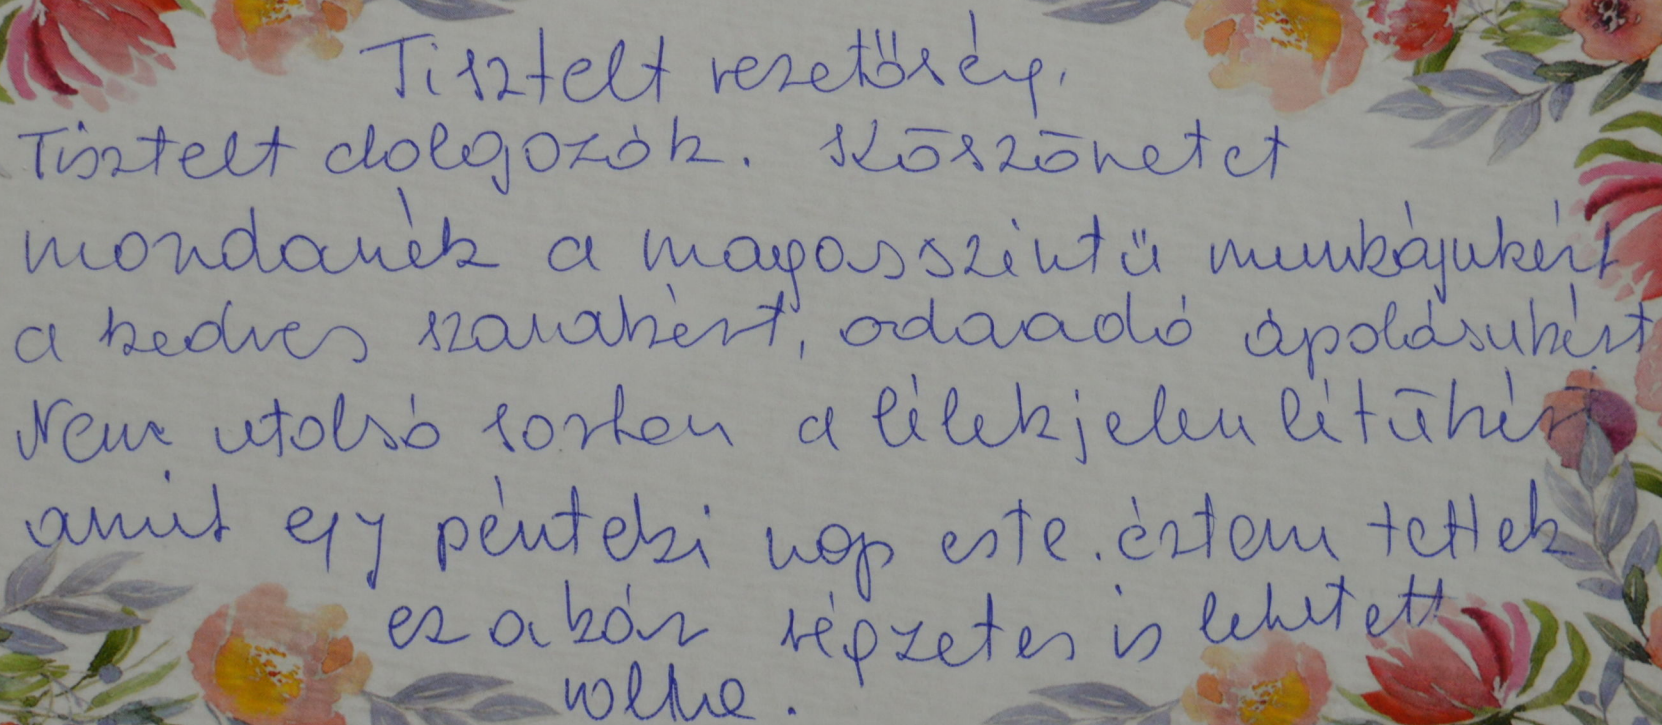 Tisztelt vezetőség,
Tisztelt dolgozók. Köszönetet
mondanék a magasszintű munkájukért
a kedves szavakért, odaadó ápolásukért
Nem utolsó sorban a lélekjelenlétükért
amit egy pénteki nap este. értem tettek
ez akár végzetes is lehetett
volna.